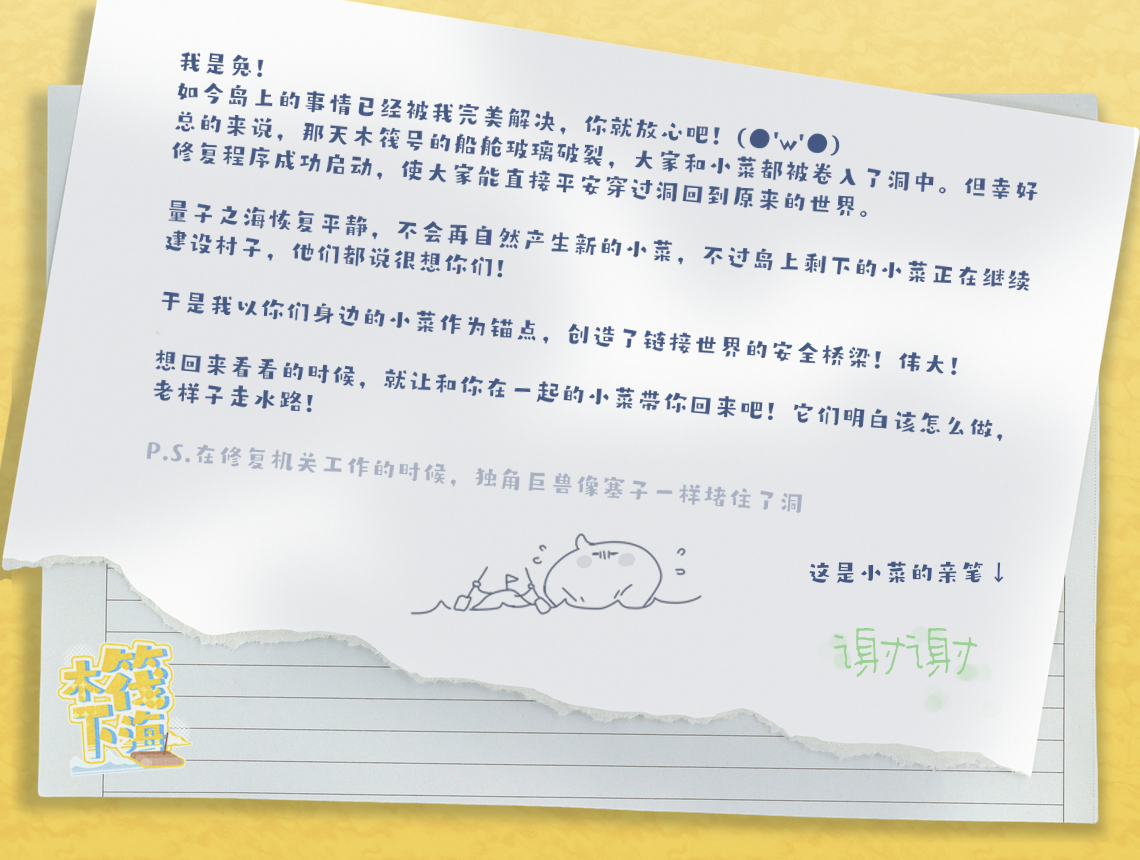 我是兔!
如今岛上的事情已经被我完美解决，你就放心吧! (●'w'●)
总的来说，那天木筏号的船舱玻璃破裂，大家和小菜都被卷入了洞中。但幸好
修复程序成功启动，使大家能直接平安穿过洞回到原来的世界。
量子之海恢复平静，不会再自然产生新的小菜，不过岛上剩下的小菜正在继续
建设村子，他们都说很想你们!
于是我以你们身边的小菜作为锚点，创造了链接世界的安全桥梁! 伟大!
想回来看看的时候，就让和你在一起的小菜带你回来吧! 它们明白该怎么做，
老样子走水路!
P.S.在修复机关工作的时候，独角巨兽像塞子一样堵住了洞
这是小菜的亲笔↓
谢谢
木筏
下海